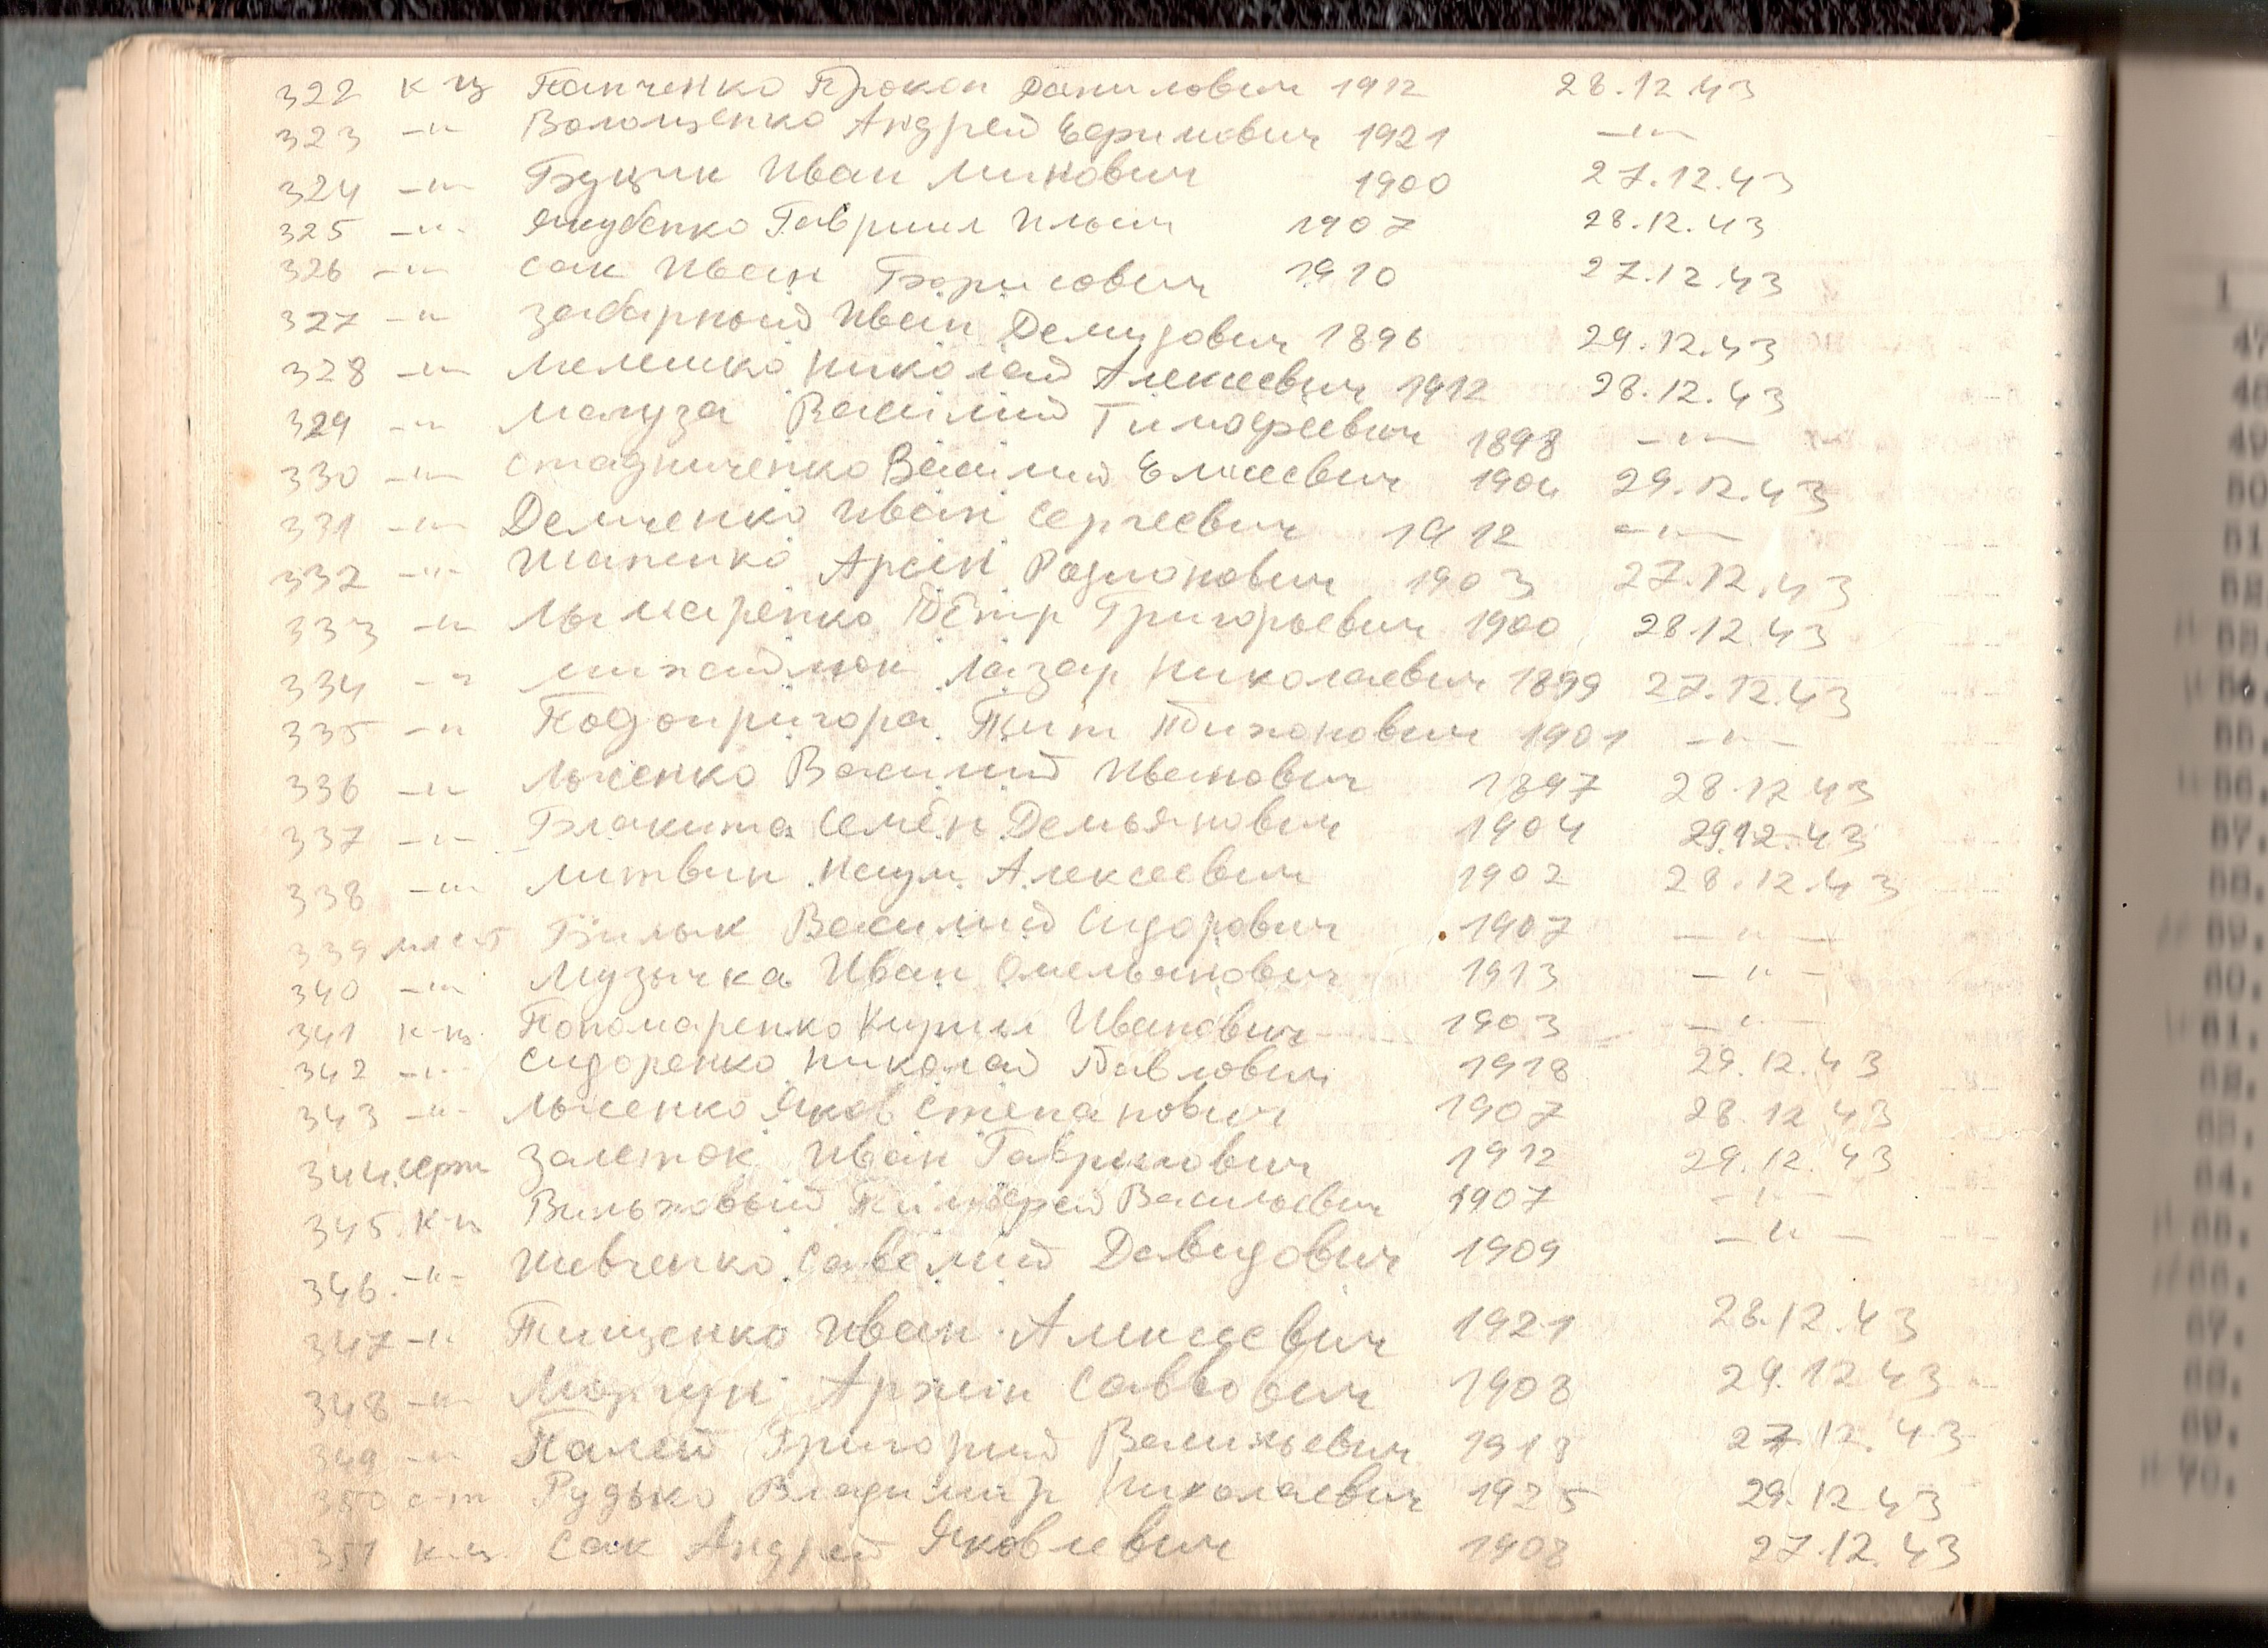 322 к-ц Панченко Прокоп Данилович 1912 28.12.43
323 -"- Волощенко Андрей Ефимович 1921 -"-
324 -"- Буцик Иван Минович 1900 27.12.43
325 -"- Якубенко Гавриил Ильич 1907 28.12.43
326 -"- Сак Иван Борисович 1910 27.12.43
327 -"- Забарный Иван Демидович 1896 29.12.43
328 -"- Мелешко Николай Алексеевич 1912 28.12.43
329 -"- Мамуза Василий Тимофеевич 1898 -"-
330 -"- Стадниченко Василий Елисеевич 1904 29.12.43
331 -"- Демченко Иван Сергеевич 1912 -"-
332 -"- Шапенко Арсін Родионович 1903 27.12.43
333 -"- Лымаренко Пётр Григорьевич 1900 28.12.43
334 -"- Михайлюк Лазар Николаевич 1899 27.12.43
335 -"- Подопригора Тит Тихонович 1901 -"-
336 -"- Льченко Василий Иванович 1897 28.12.43
337 -"- Блакита Семён Демьянович 1904 29.12.43
338 -"- Литвин Наум Алексеевич 1902 28.12.43
339 Билык Василий Сидорович 1907 -"-
340 -"- Музычка Иван Омельянович 1913 -"-
341 к-ц Пономаренко Кирил Иванович 1903 -"-
342 -"- Сидоренко Николай Павлович 1918 29.12.43
343 -"- Льченко Яков Степанович 1907 28.12.43
344 серж Залеток Иван Гаврилович 1912 29.12.43
345 к-ц Вильховый Тимофей Васильевич 1907 -"-
346 -"- Шевченко Савелий Давидович 1909 -"-
347 -"- Тищенко Иван 1921 28.12.43
348 -"- Моргун Архип Саввович 1908 29.12.43
349 -"- Палей Григорий Васильевич 1918 27.12.43
350 с-т Рудько Владимир Николаевич 1925 29.12.43
351 к-ц Сак Андрей Яковлевич 1908 27.12.43